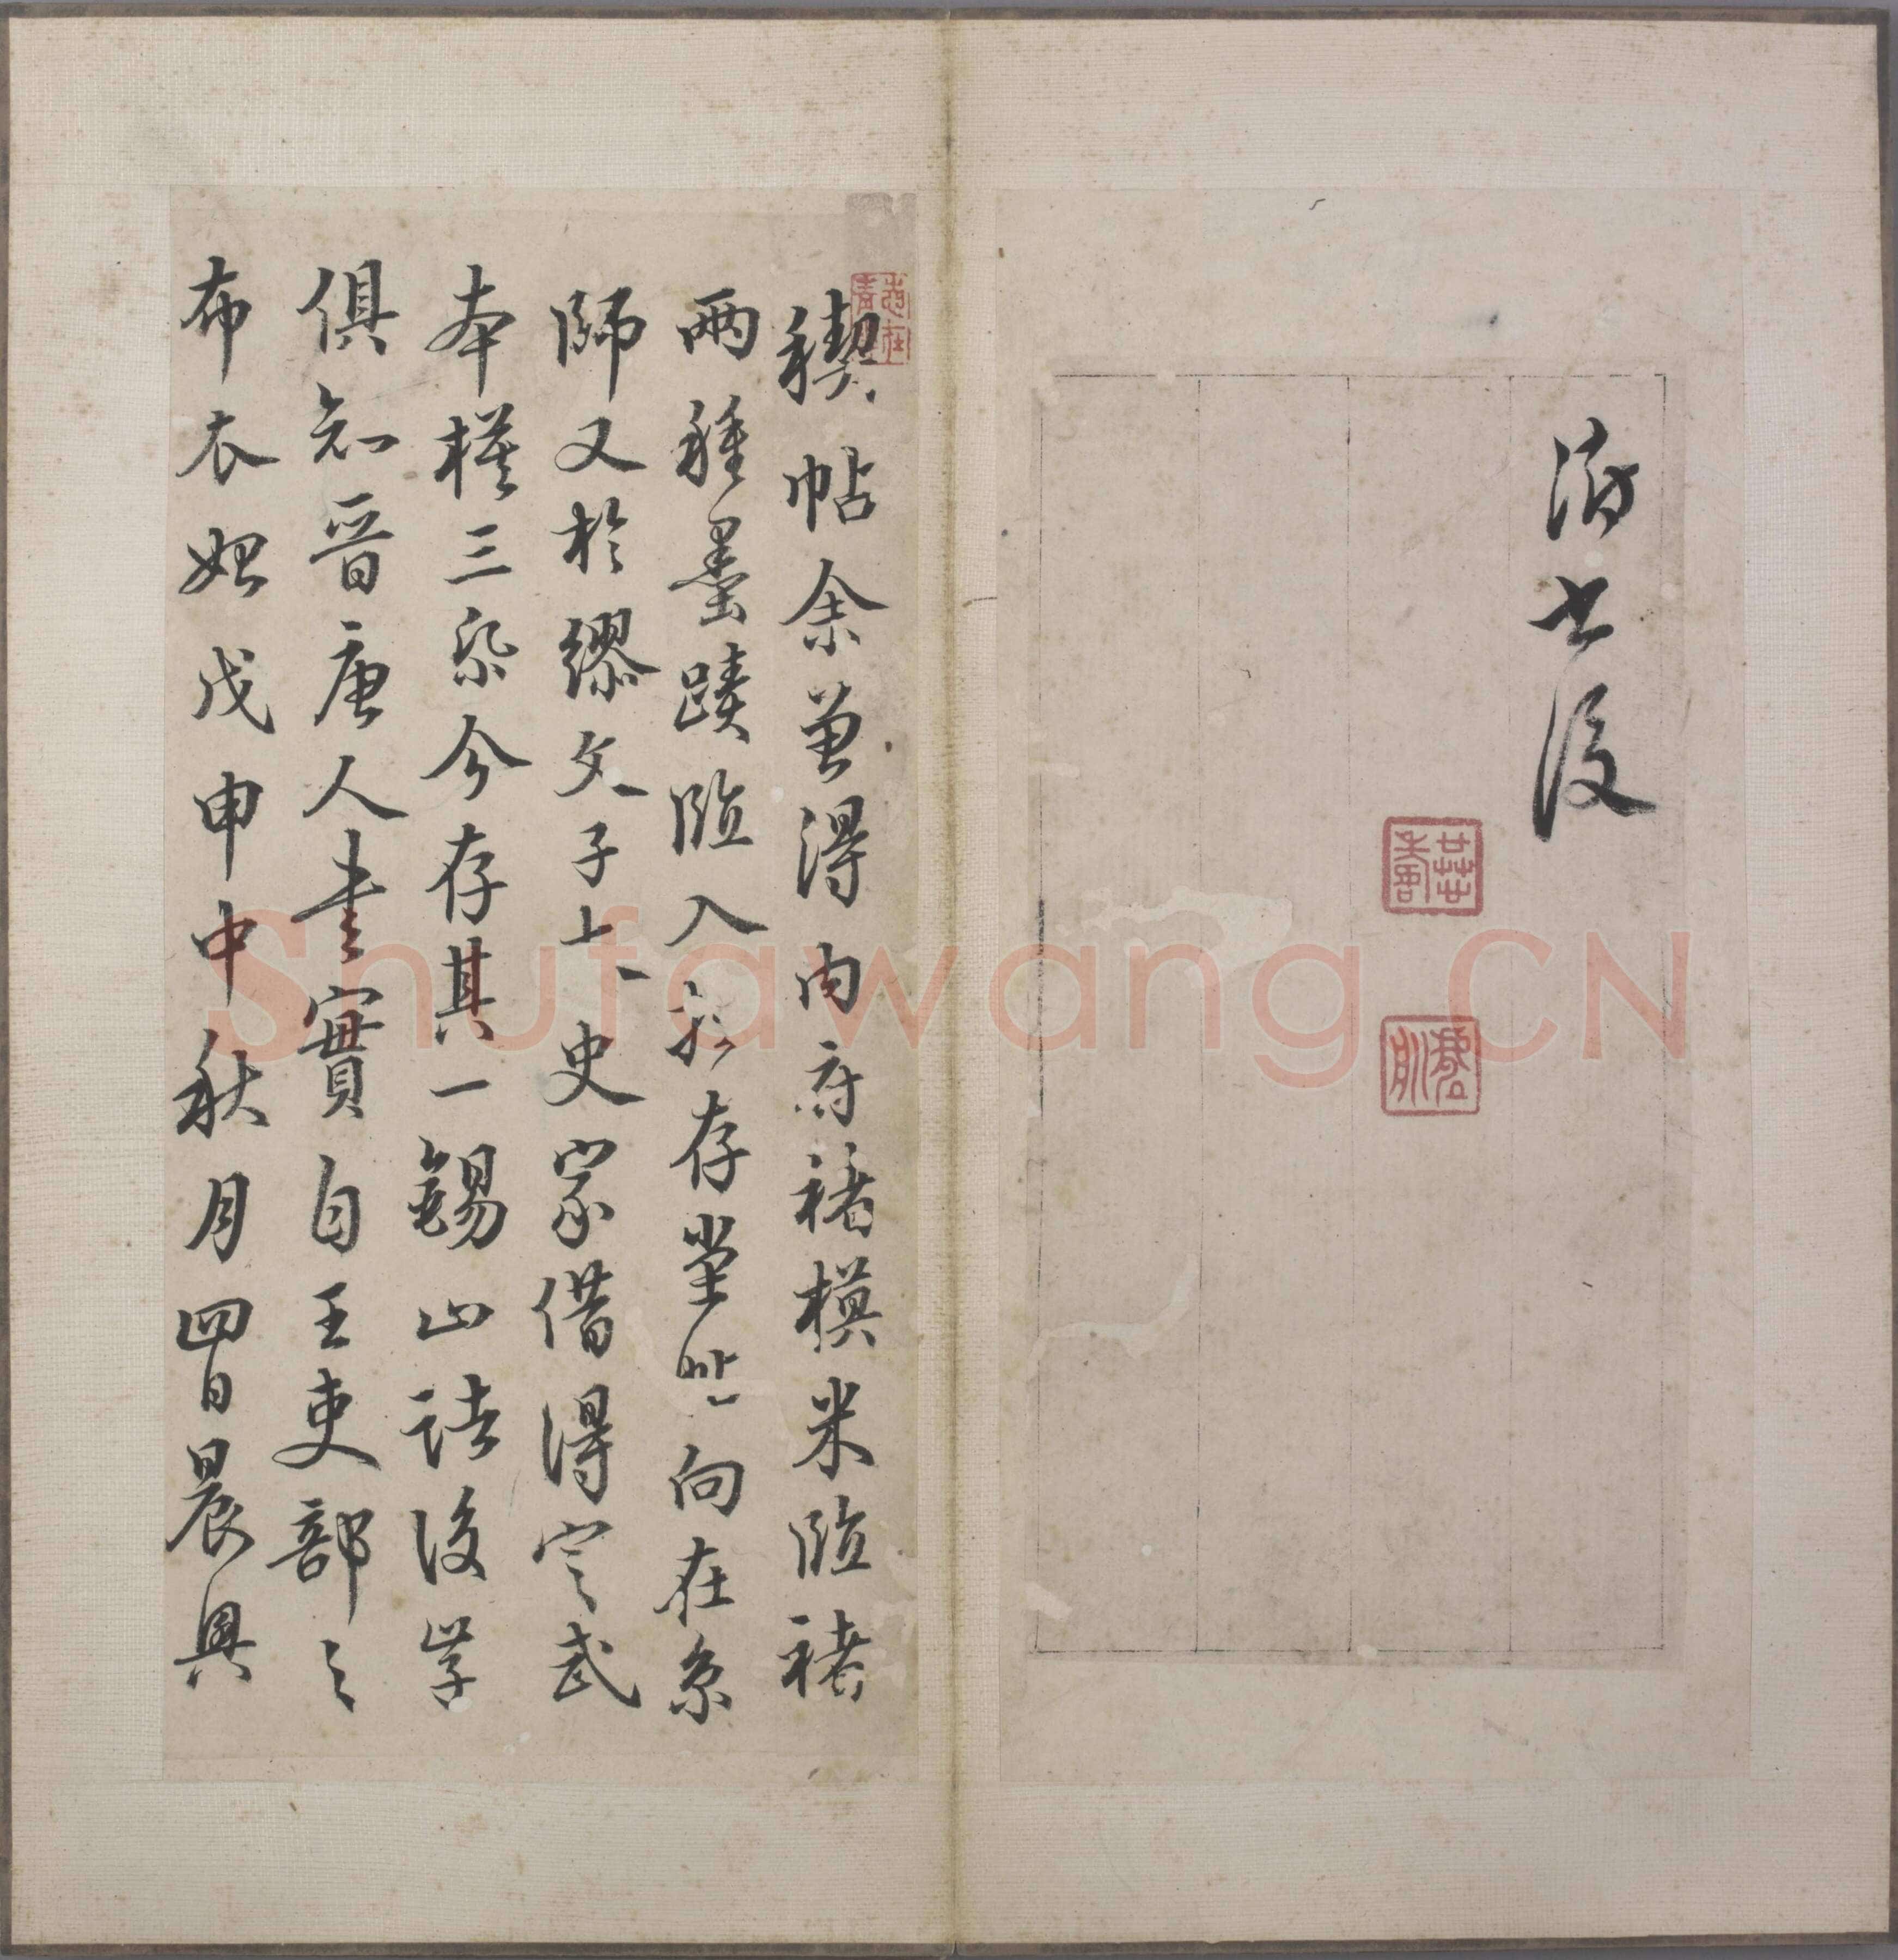 书後
稧帖余曾得内府褚模米臨褚
兩種墨蹟臨入於存堂 向在京
師又於繆文子太史家借得定武
本模三 今存其一錫山諸後學
俱知晋唐人書實自王吏部之
布衣始戊申中秋月四日晨興
Shufawang.CN